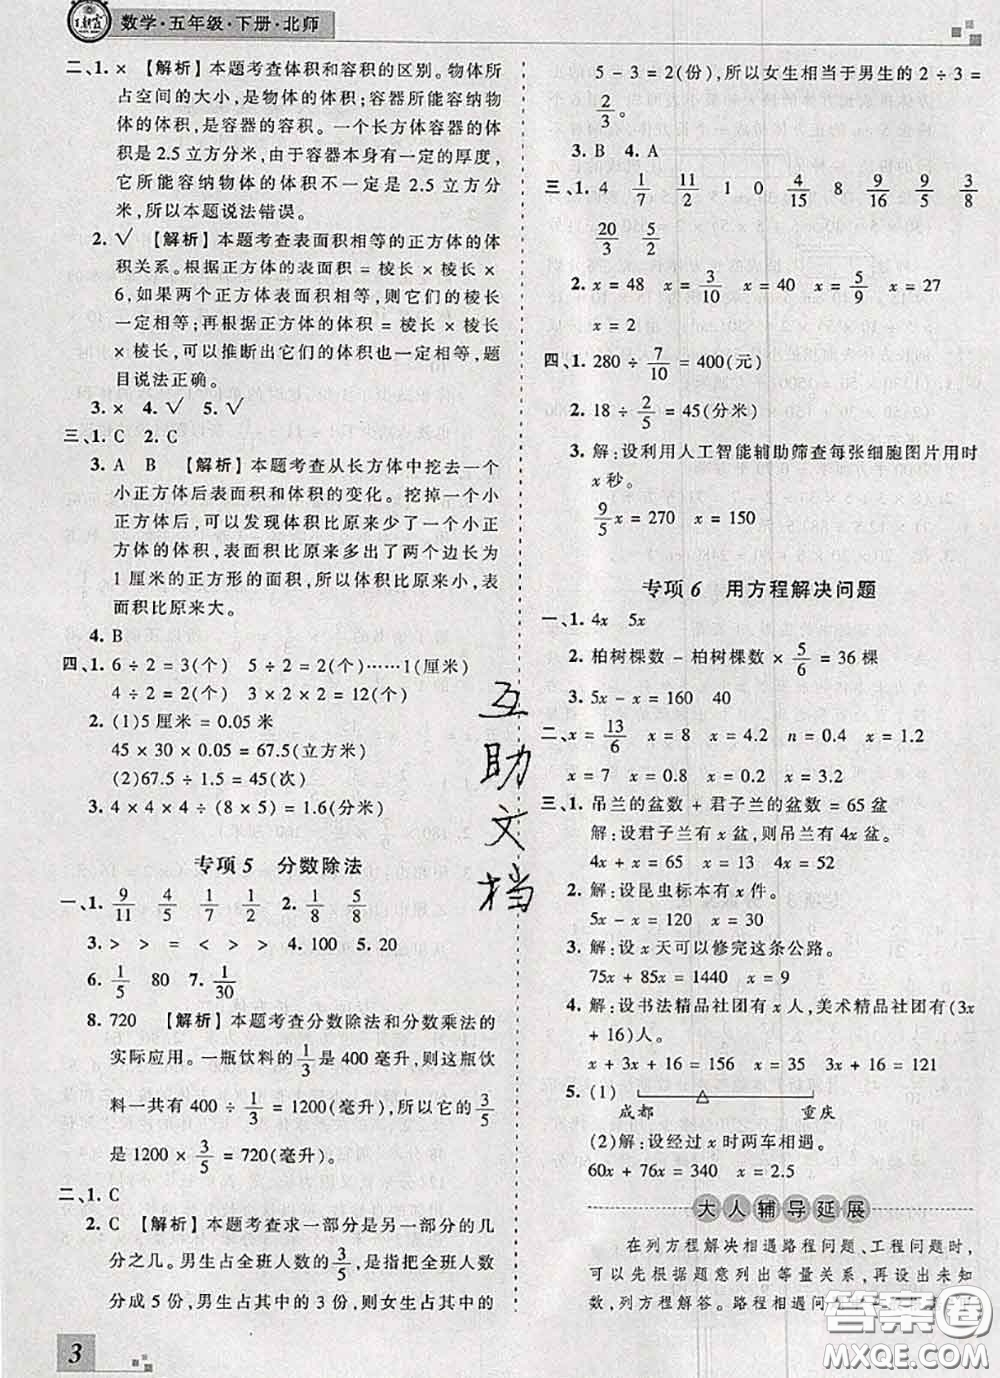 数学·五年级·下册·北师
二、1. × 【解析】本题考查体积和容积的区别。物体所
占空间的大小,是物体的体积;容器所能容纳物
体的体积,是容器的容积。一个长方体容器的体
积是 2.5 立方分米,由于容器本身有一定的厚度,
它所能容纳物体的体积不一定是 2.5 立方分
米,所以本题说法错误。
2. √ 【解析】本题考查表面积相等的正方体的体
积关系。根据正方体的表面积 = 棱长 × 棱长 ×
6,如果两个正方体表面积相等,则它们的棱长
一定相等;再根据正方体的体积 = 棱长 × 棱长
× 棱长,可以推断出它们的体积也一定相等,题
目说法正确。
3. × 4. √ 5. √
三、1. C 2. C
3. A B 【解析】本题考查从长方体中挖去一个
小正方体后表面积和体积的变化。挖掉一个小
正方体后,可以发现体积比原来少了一个小正
方体的体积,表面积比原来多出了两个边长为
1 厘米的正方形的面积,所以体积比原来小,表
面积比原来大。
4. B
四、1. 6 ÷ 2 = 3(个) 5 ÷ 2 = 2(个)……1(厘米)
4 ÷ 2 = 2(个) 3 × 2 × 2 = 12(个)
2. (1)5 厘米 = 0.05 米
45 × 30 × 0.05 = 67.5(立方米)
(2)67.5 ÷ 1.5 = 45(次)
3. 4 × 4 × 4 ÷ (8 × 5) = 1.6(分米)
专项 5 分数除法
一、1. 9/11 4/5 1/7 1/2 2. 1/8 5/8
3. > > = < > > 4. 100 5. 20
6. 1/5 80 7. 1/30
8. 720 【解析】本题考查分数除法和分数乘法的
实际应用。一瓶饮料的 1/3 是 400 毫升,则这瓶饮
料一共有 400 ÷ 1/3 = 1200(毫升),所以它的 3/5
是 1200 × 3/5 = 720(毫升)。
二、1. C
2. C 【解析】本题考查求一部分是另一部分的几
分之几。男生占全班人数的 3/5,把全班人数平均
分成 5 份,男生占其中的 3 份,则女生占其中的
5 - 3 = 2(份),所以女生相当于男生的 2 ÷ 3 =
2/3。
3. B 4. A
三、1. 4 1/7 11/2 1 0 4/15 8 9/16 9/16 3/8
20/3 5/2
2. x = 48 x = 3/10 x = 40 x = 5/9 x = 27
x = 2
四、1. 280 ÷ 7/10 = 400(元)
2. 18 ÷ 2/5 = 45(分米)
3. 解:设利用人工智能辅助筛查每张细胞图片用时
x 秒。
9/5 x = 270 x = 150
专项 6 用方程解决问题
一、1. 4x 5x
2. 柏树棵数 - 柏树棵数 × 5/6 = 36 棵
3. 5x - x = 160 40
二、x = 13/6 x = 8 x = 4.2 n = 0.4 x = 1.2
x = 7 x = 0.8 x = 0.2 x = 3.2
三、1. 吊兰的盆数 + 君子兰的盆数 = 65 盆
解:设君子兰有 x 盆,则吊兰有 4x 盆。
4x + x = 65 x = 13 4x = 52
2. 解:设昆虫标本有 x 件。
5x - x = 120 x = 30
3. 解:设 x 天可以修完这条公路。
75x + 85x = 1440 x = 9
4. 解:设书法精品社团有 x 人,美术精品社团有(3x
+ 16)人。
x + 3x + 16 = 156 x = 35 3x + 16 = 121
5. (1)
成都 重庆
(2)解:设经过 x 时两车相遇。
60x + 76x = 340 x = 2.5
大人辅导延展
在列方程解决相遇路程问题、工程问题时,
可以先根据题意列出等量关系,再设出未知
数,列方程解答。路程相遇问
互助文档
答案圈
MXQE.COM
3